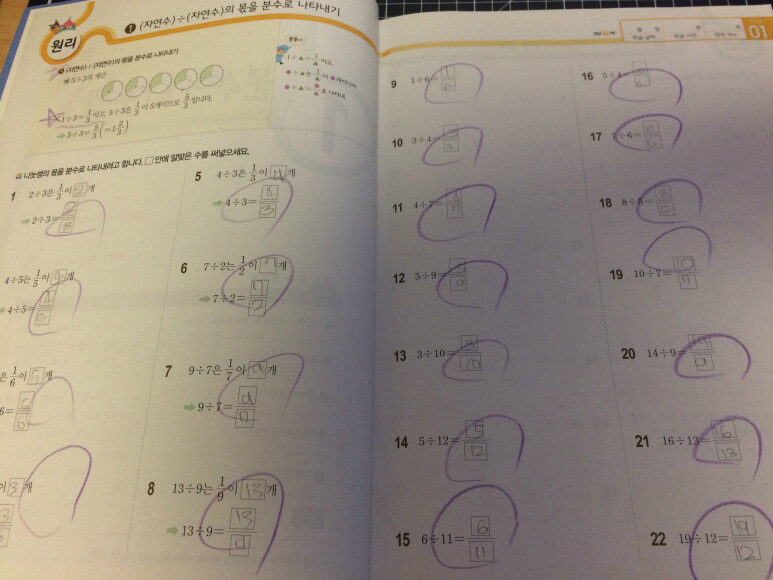 원리
1 (자연수)÷(자연수)의 몫을 분수로 나타내기
(자연수)÷(자연수)의 몫을 분수로 나타내기
예 5÷3의 계산
1÷3=1/3이고, 5÷3은 1/3이 5개이므로 5/3입니다.
➡ 5÷3=5/3(=1 2/3)
1÷▲=1/▲이고,
나눗셈의 몫을 분수로 나타내려고 합니다. □ 안에 알맞은 수를 써넣으세요.
1 2÷3은 1/3이 2개
➡ 2÷3=2/3
4÷5는 1/5이 4개
➡ 4÷5=4/5
은 1/6이 5개
6=5/6
이 3개
5 4÷3은 1/3이 4개
➡ 4÷3=4/3
6 7÷2는 1/2이 7개
➡ 7÷2=7/2
7 9÷7은 1/7이 9개
➡ 9÷7=9/7
8 13÷9는 1/9이 13개
➡ 13÷9=13/9
01
월 일
학습 날짜
학습 시간
맞힌 개수
9 1÷6=1/6
10 3÷4=3/4
11 4÷7=4/7
12 5÷9=5/9
13 3÷10=3/10
14 5÷12=5/12
15 6÷11=6/11
16 5÷4=5/4
17 7÷6=7/6
18 8÷5=8/5
19 10÷7=10/7
20 14÷9=14/9
21 16÷13=16/13
22 19÷12=19/12